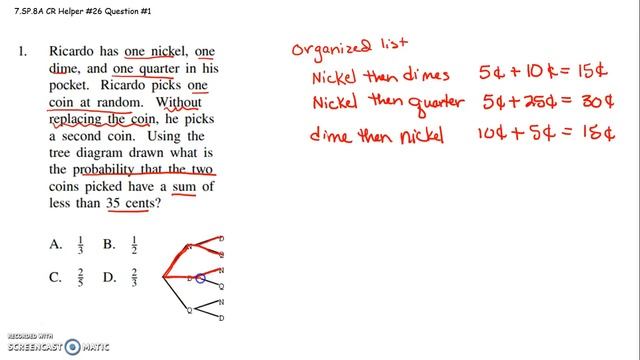 7.SP.8A CR Helper #26 Question #1
1. Ricardo has one nickel, one
dime, and one quarter in his
pocket. Ricardo picks one
coin at random. Without
replacing the coin, he picks
a second coin. Using the
tree diagram drawn what is
the probability that the two
coins picked have a sum of
less than 35 cents?
A. 1/3 B. 1/2
C. 2/5 D. 2/3
N D Q
D N Q
Q N D
Organized list
Nickel then dimes 5¢ + 10¢ = 15¢
Nickel then quarter 5¢ + 25¢ = 30¢
dime then nickel 10¢ + 5¢ = 15¢
RECORDED WITH
SCREENCAST MATIC